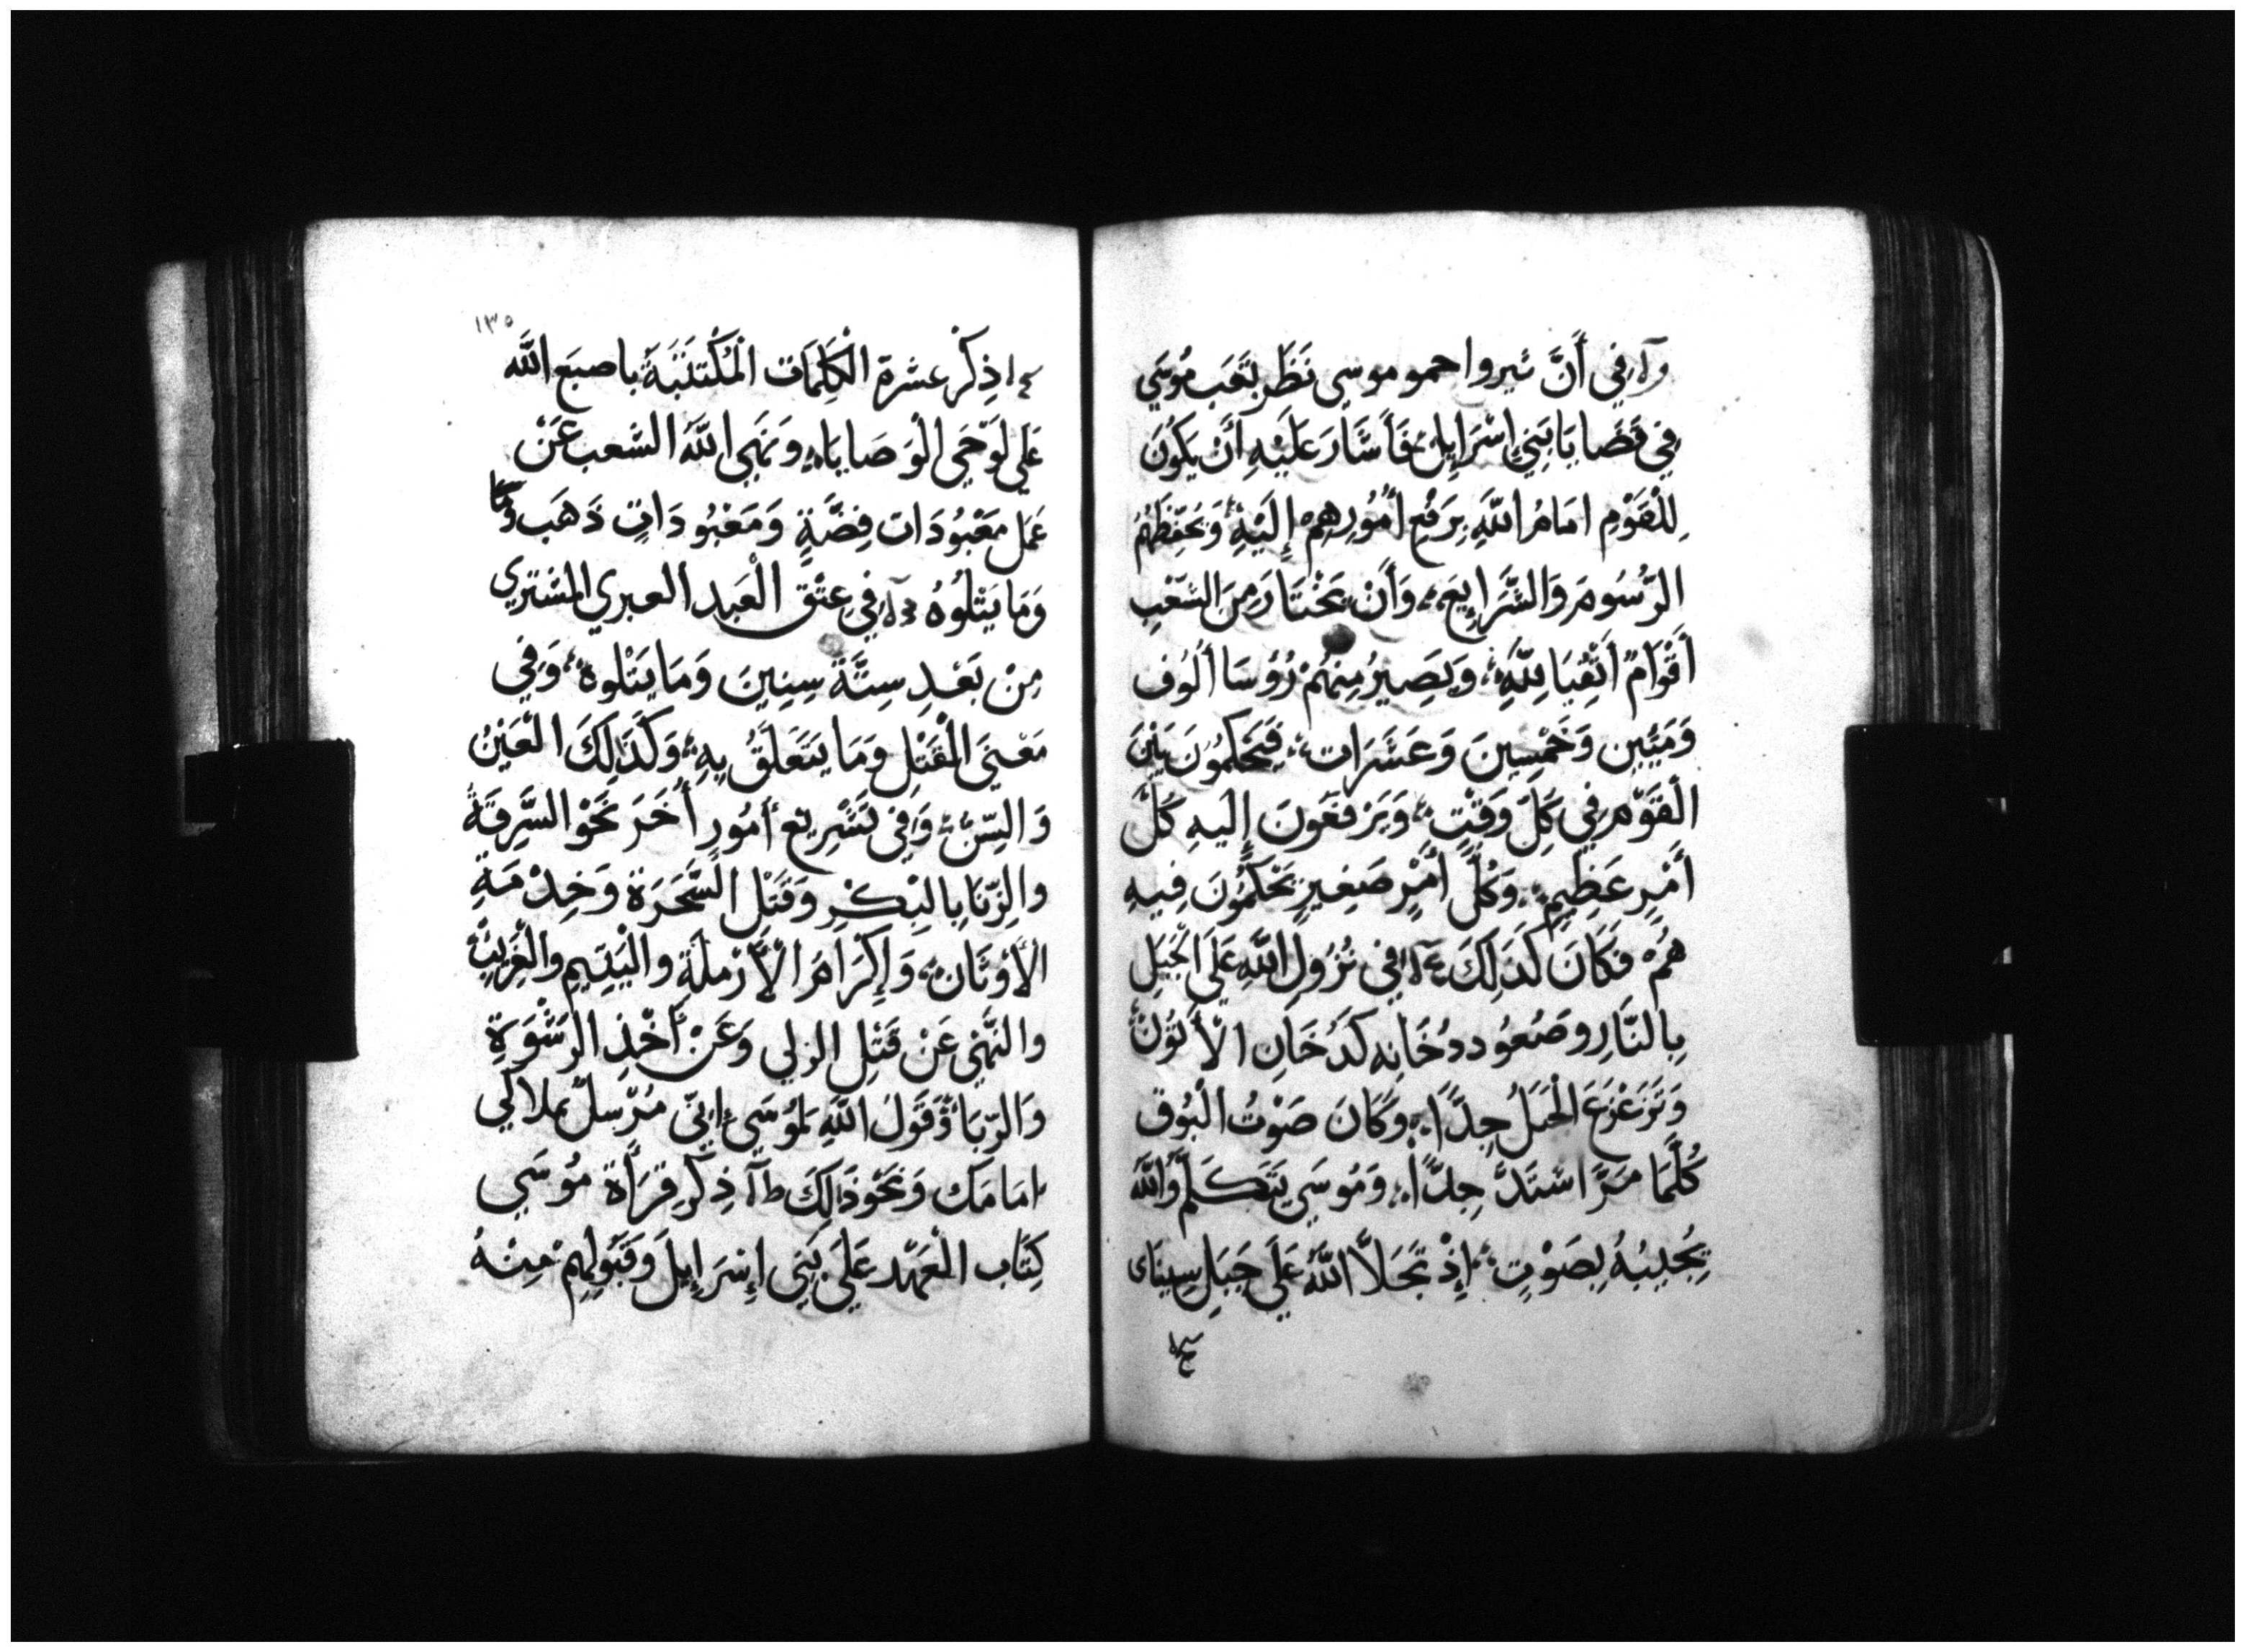 في أَنَّ ثيروا حمو موسى نَظَر بتَعَب مُوسَي
فِي قَضَايَا بَنِي إِسْرَايِلَ، فَأَشَارَ عَلَيْهِ أَنْ يَكُونَ
لِلْقَوْمِ امَامَ اللَّهِ بِرَفْعِ أُمُورِهِمْ إِلَيْهِ، وَيُحَفِّظَهُمُ
الرُّسُومَ وَالشَّرَايِعَ، وَأَنْ يَخْتَارَ مِنَ الشَعْبِ
أَقْوَامٌ أَتْقِيَا لِلَّهِ، وَيَصِيرُ مِنْهُمْ رُؤُسَا أُلُوف
وَمَيِّينِ وَخَمْسِينَ وَعَشَرَات، فَيَحْكُمُونَ بَيْنَ
الْقَوْمِ فِي كُلِّ وَقْتٍ، وَيَرْفَعُونَ إِلَيهِ كُلَّ
أَمْرٍ عَظِيمٍ، وَكُلُّ أَمْرٍ صَغِيرٍ يَحْكُمُونَ فِيهِ
هُمْ فَكَانَ كَذَلِكَ في نُزُولِ اللَّهِ عَلَى الْجَبَلِ
بِالنَّارِ وصَعُود دُخَانِهِ كَدُخَانِ الأَتُونْ
وَتَزَعْزَعَ الْجَبَلُ جِدًّا، وَكَانَ صَوْتُ الْبُوق
كُلَّمَا مَرَّ اشتَدَّ جِدًّا، وَمُوسَي يَتَكَلَّمُ وَاللَّهُ
يُجِيبُهُ بِصَوْتٍ، إِذْ تَجَلَّا اللَّهُ عَلَى جَبَلِ سِينَاى
١٣٥
ذِكْرُ عشرة الْكَلِمَات الْمُكْتَتَبَةُ باصبَع اللَّه
عَلي لَوْحَي الْوَصَايَا، وَنَهَى اللَّهُ الشعب عَنْ
عَمَل مَعْبُودَات فِضَّةٍ وَمَعْبُودَاتِ ذَهَب
وَمَا يَتْلُوهُ في عِتْق الْعَبد العبري المشتري
مِنْ بَعْدِ سِتَّةِ سِنِينَ وَمَا يَتْلوه، وَفِي
مَعْنَى الْقَتْلِ وَمَا يَتَعَلَّقُ بِهِ، وَكَذَلِكَ الْعَيْنُ
وَالسِّنُّ، وَفِي تَشْرِيع أُمُورٍ أُخَرَ نَحْو السَّرِقَةُ
والزِّنَا بِالْبِكْرِ وَقَتْلِ السَّحَرَة وَخِدْمَةِ
الأَوْثَان، وَإِكْرَامَ الأَرْمَلَةِ واليَتِيمِ والْغَرِيبْ
والنَّهْي عَنْ قَتْلِ الزلي وَعَنْ أَخْذِ الرِشْوَةِ
وَالرِّبَا وَقَوْلَ اللَّهِ لمُوسَي إِنِّي مُرْسِلٌ مَلاكي
امَامَك وَنَحْوَ ذَلِكَ ذِكْر قِرَأَة مُوسَي
كِتَاب الْعَهْد عَلَي بَنِي إِسْرَايلَ وَقَبُولِهِمْ مِنْهُ